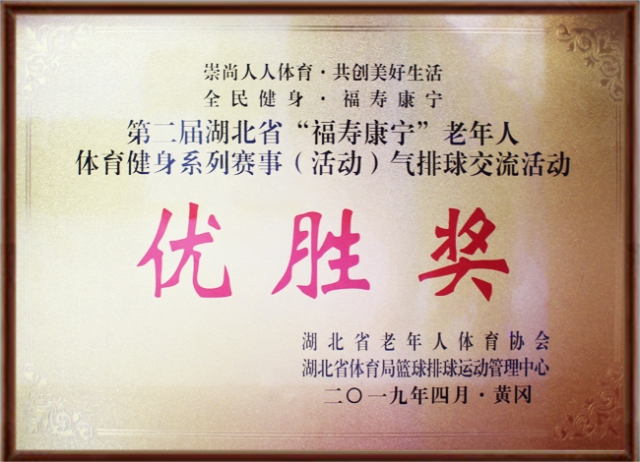 崇尚人人体育·共创美好生活
全民健身·福寿康宁
第二届湖北省“福寿康宁”老年人
体育健身系列赛事（活动）气排球交流活动
优胜奖
湖北省老年人体育协会
湖北省体育局篮球排球运动管理中心
二〇一九年四月·黄冈